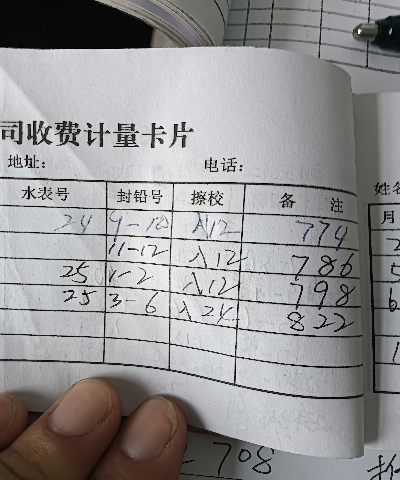 司收费计量卡片
地址： 电话：
水表号 封铅号 擦校 备 注
24 9-10 入12 774
11-12 入12 786
25 1-2 入12 798
25 3-6 入24 822
姓名
月
708